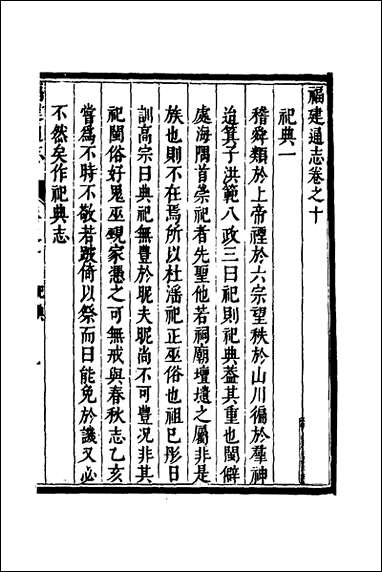 福建通志卷之十
祀典一
稽舜類於上帝禋於六宗望秩於山川徧於羣神
迨箕子洪範八政三曰祀則祀典葢其重也閩僻
處海隅首崇祀者先聖他若祠廟壇壝之屬非是
族也則不在焉所以杜滛祀正巫俗也祖已肜日
訓高宗曰典祀無豐於昵夫昵尚不可豐况非其
祀閩俗好鬼巫覡家憑之可無戒與春秋志乙亥
嘗爲不時不敬若跛倚以祭而曰能免於譏又必
不然矣作祀典志